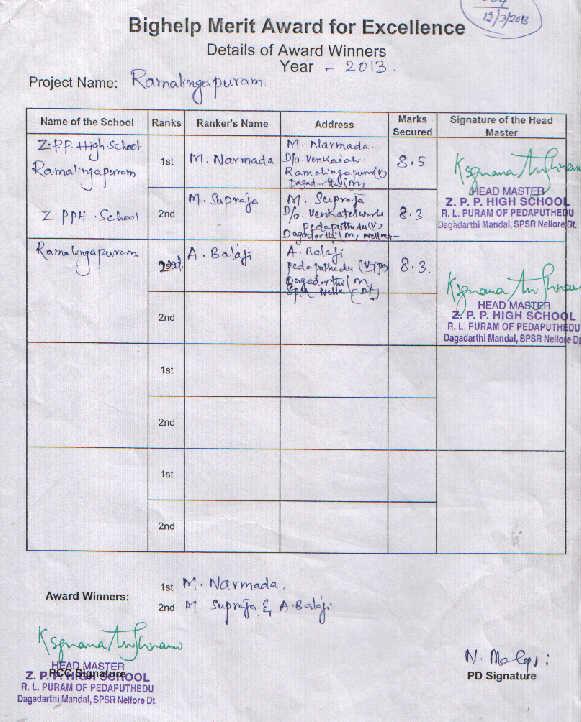 13/7/2013
Bighelp Merit Award for Excellence
Details of Award Winners
Year - 2013.
Project Name: Ramalingapuram.
Name of the School Ranks Ranker's Name Address Marks Secured Signature of the Head Master
Z.P.P. High School
Ramalingapuram
1st M. Narmada
M. Narmada.
D/o Venkaiah
Ramalingapuram(V)
Dagadarthi(M)
8.5
HEAD MASTER
Z. P. P. HIGH SCHOOL
R. L. PURAM OF PEDAPUTHEDU
Dagadarthi Mandal, SPSR Nellore Dt.
Z PPH. School
2nd M. Supraja
M. Supraja
D/o Venkateswarlu
Pedaputhedu(V)
Dagadarthi(M)
8.3
Ramalingapuram
2nd A. Balaji
A. Balaji
Pedaputhedu (V)
Dagadarthi (M)
SPSR Nellore (Dt)
8.3
HEAD MASTER
Z. P. P. HIGH SCHOOL
R. L. PURAM OF PEDAPUTHEDU
Dagadarthi Mandal, SPSR Nellore Dt
2nd
1st
2nd
1st
2nd
Award Winners:
1st M. Narmada.
2nd M Supraja & A. Balaji
HEAD MASTER
RCC Signature
Z. P. P. HIGH SCHOOL
R. L. PURAM OF PEDAPUTHEDU
Dagadarthi Mandal, SPSR Nellore Dt.
PD Signature